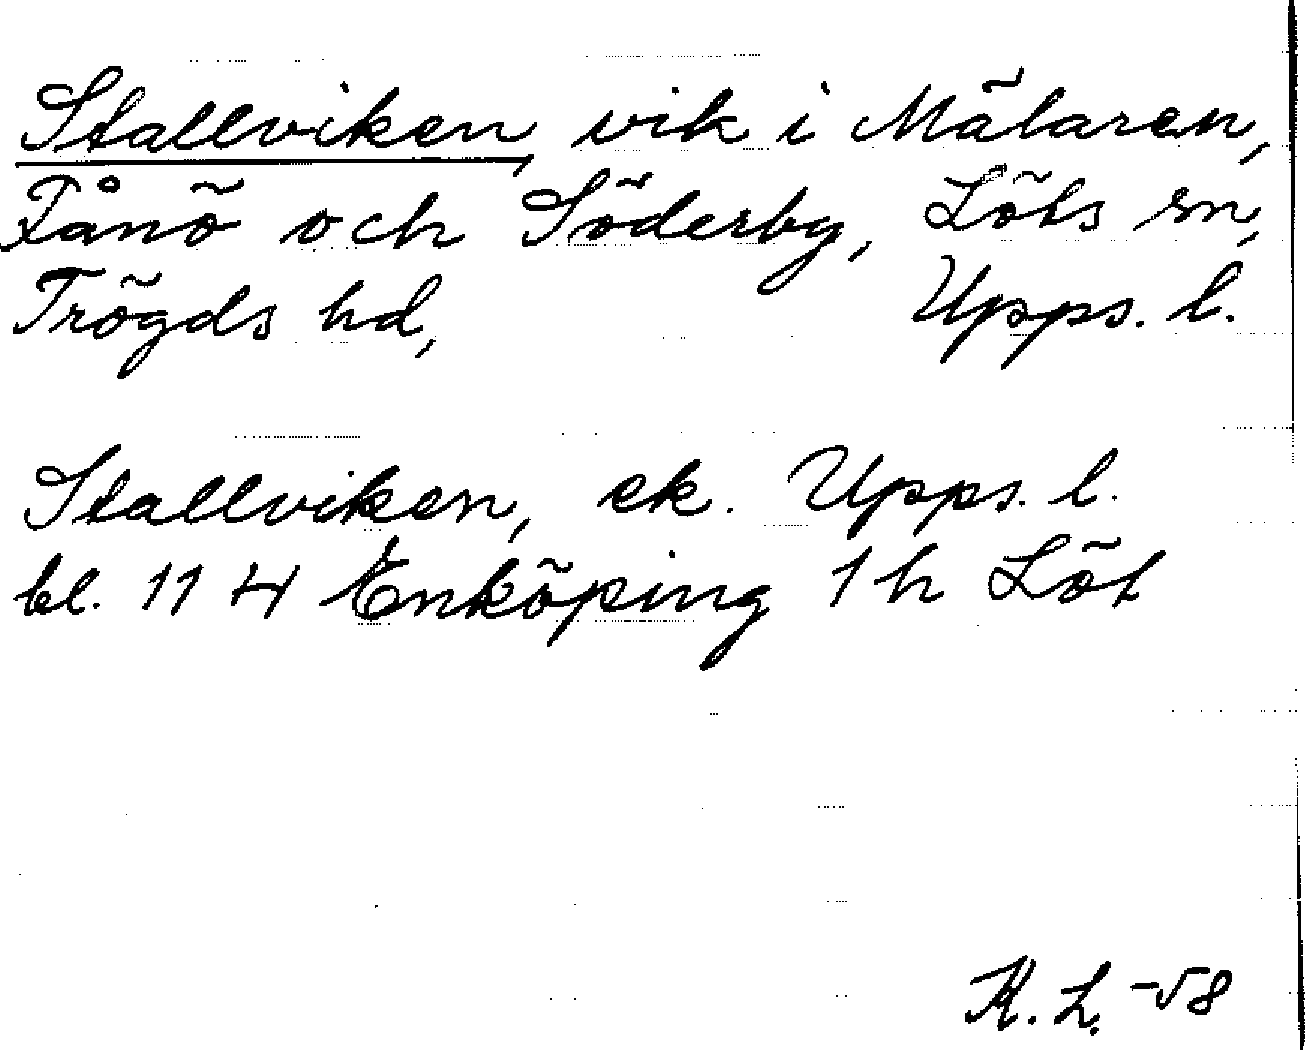 Stallviken, vik i Mälaren,
Fånö och Söderby, Löts sn,
Trögds hd, Upps. l.
Stallviken, ek. Upps. l.
bl. 114 Enköping 1h Löt
K. L. -58